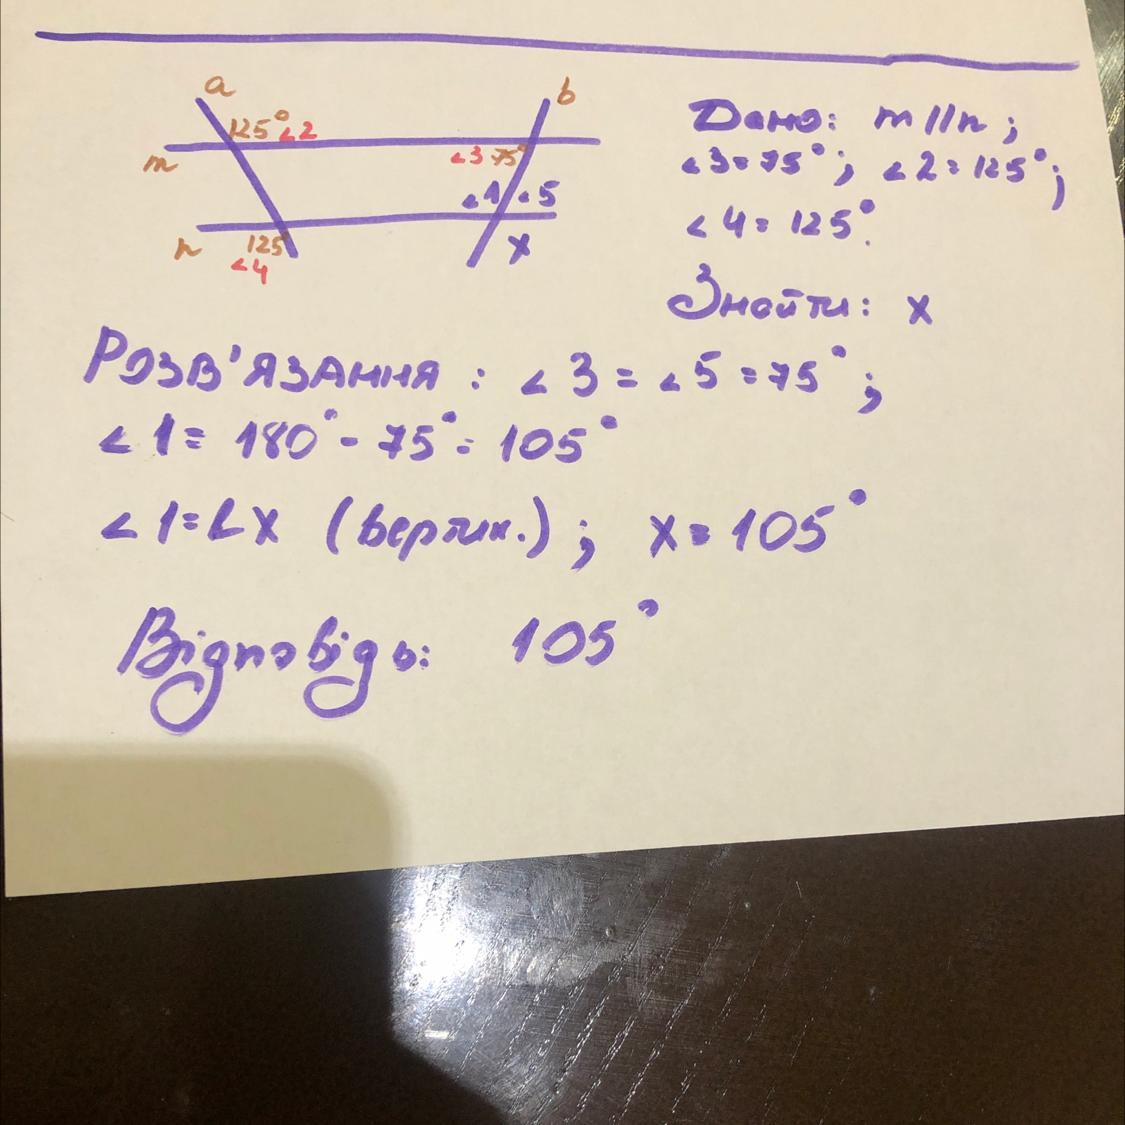 a
b
125° ∠2
m
∠3 75°
∠1 ∠5
n
125°
∠4
x
Дано: m||n;
∠3=75°; ∠2=125°;
∠4=125°.
Знайти: x
Розв'язання: ∠3=∠5=75°;
∠1=180°-75°=105°
∠1=∠x (вертик.); x=105°
Відповідь: 105°